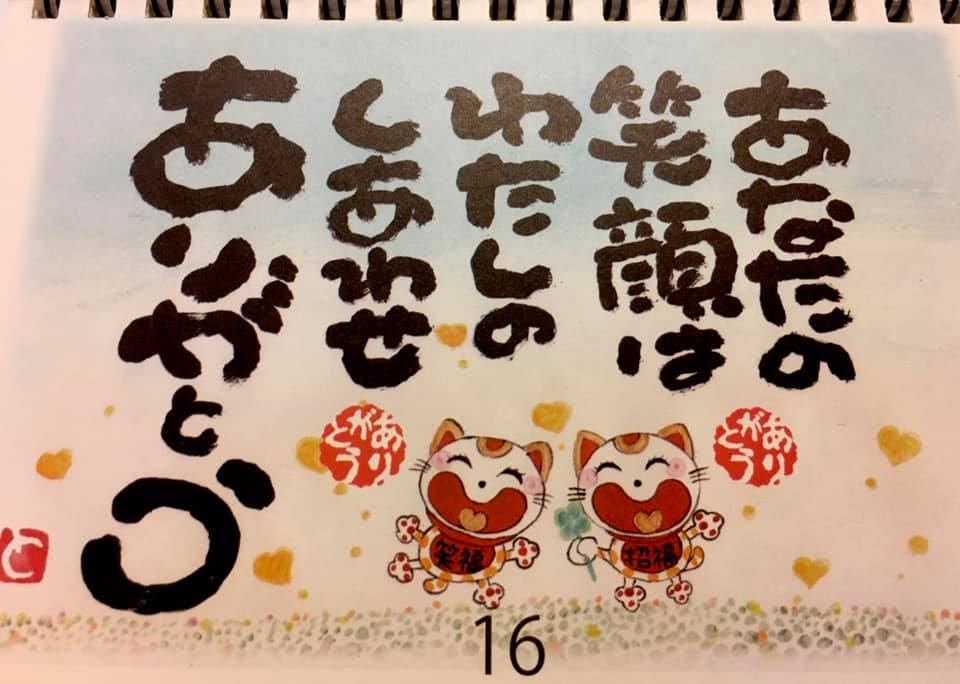 あなたの
笑顔は
わたしの
しあわせ
ありがとう
ありがとう
ありがとう
笑福
招福
と
16